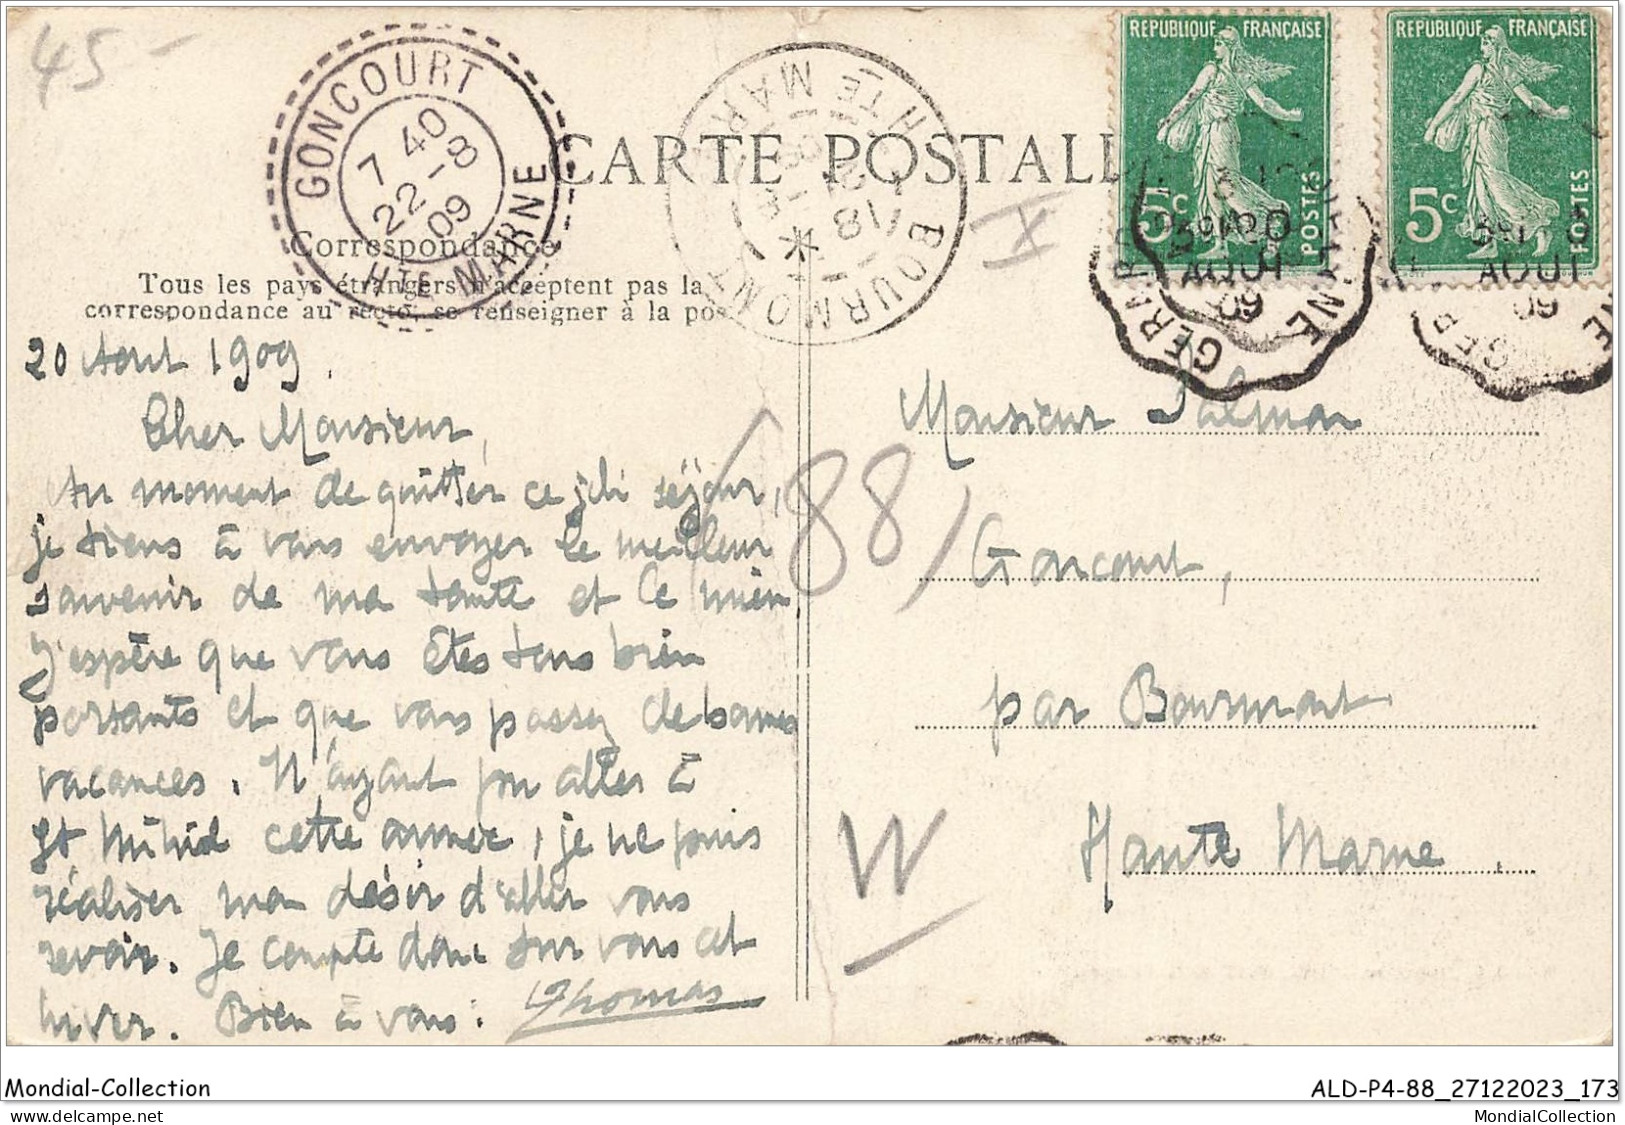 45 -
GONCOURT
7 40
22 - 8
09
HTE MARNE
BOURMONT
HTE MARNE
REPUBLIQUE FRANÇAISE
5c
POSTES
REPUBLIQUE FRANÇAISE
5c
POSTES
AOUT
09
AOUT
09
CARTE POSTALE
Correspondance
Tous les pays étrangers n'acceptent pas la
correspondance au recto, se renseigner à la pos
20 Aout 1909.
Cher Monsieur,
Au moment de quitter ce joli séjour,
je tiens à vous envoyer le meilleur
souvenir de ma tante et le mien
J'espère que vous êtes tous bien
portants et que vous passez de bonnes
vacances. N'ayant pu aller à
St Mihiel cette année, je ne puis
réaliser mon désir d'aller vous
revoir. Je compte donc sur vous cet
hiver. Bien à vous:
Thomas
(88)
X
W
Monsieur Salmon
Goncourt,
par Bourmont
Haute Marne.
Mondial-Collection
ALD-P4-88_27122023_173
MondialCollection